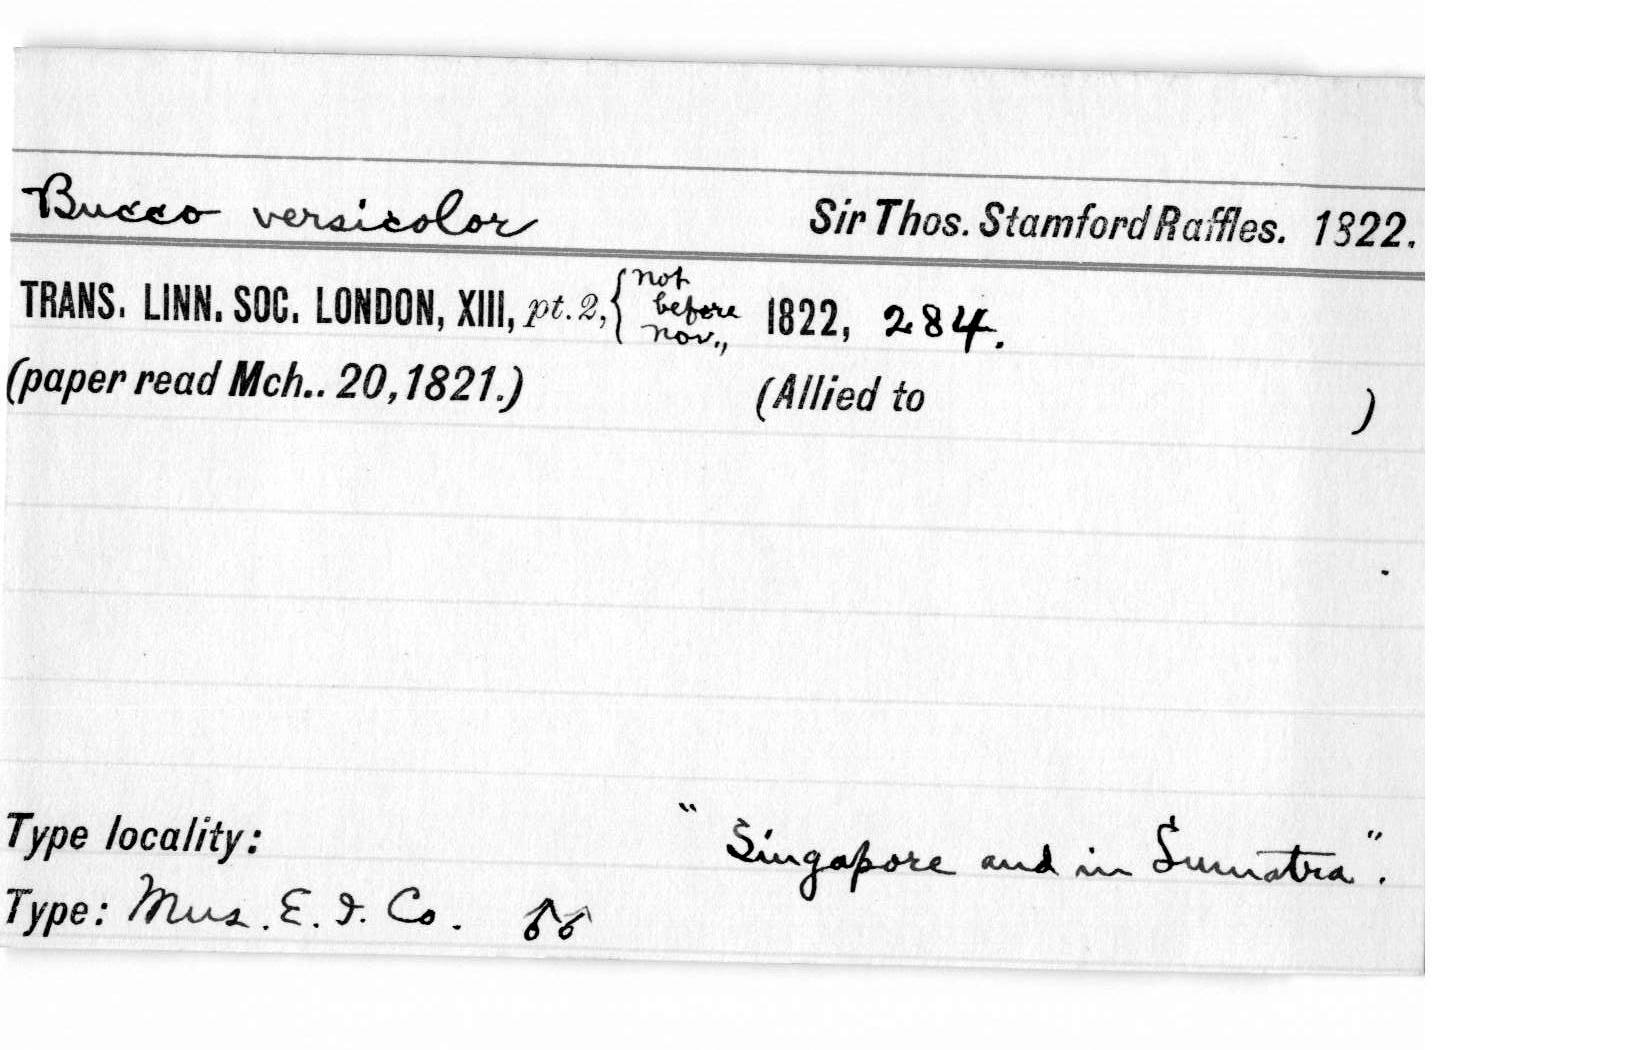 Bucco versicolor Sir Thos. Stamford Raffles. 1822.
TRANS. LINN. SOC. LONDON, XIII, pt. 2, { not before Nov., 1822, 284.
(paper read Mch.. 20, 1821.) (Allied to )
Type locality: "Singapore and in Sumatra".
Type: Mus. E. I. Co. ♂♂